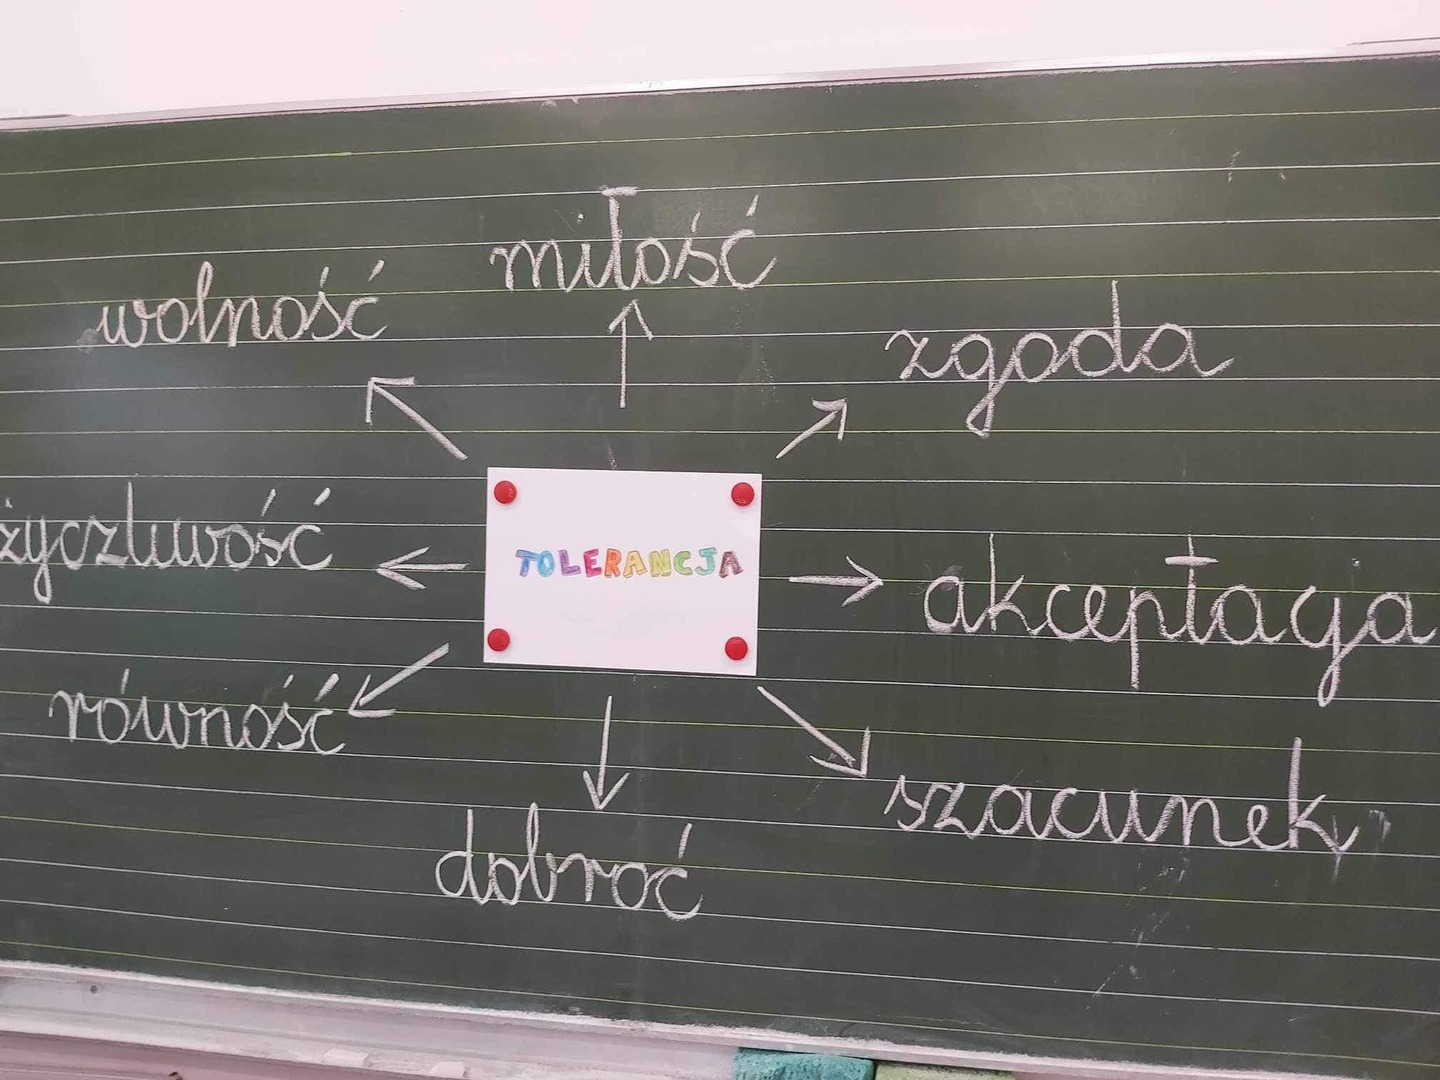 miłość
wolność
zgoda
życzliwość
TOLERANCJA
akceptacja
równość
szacunek
dobroć